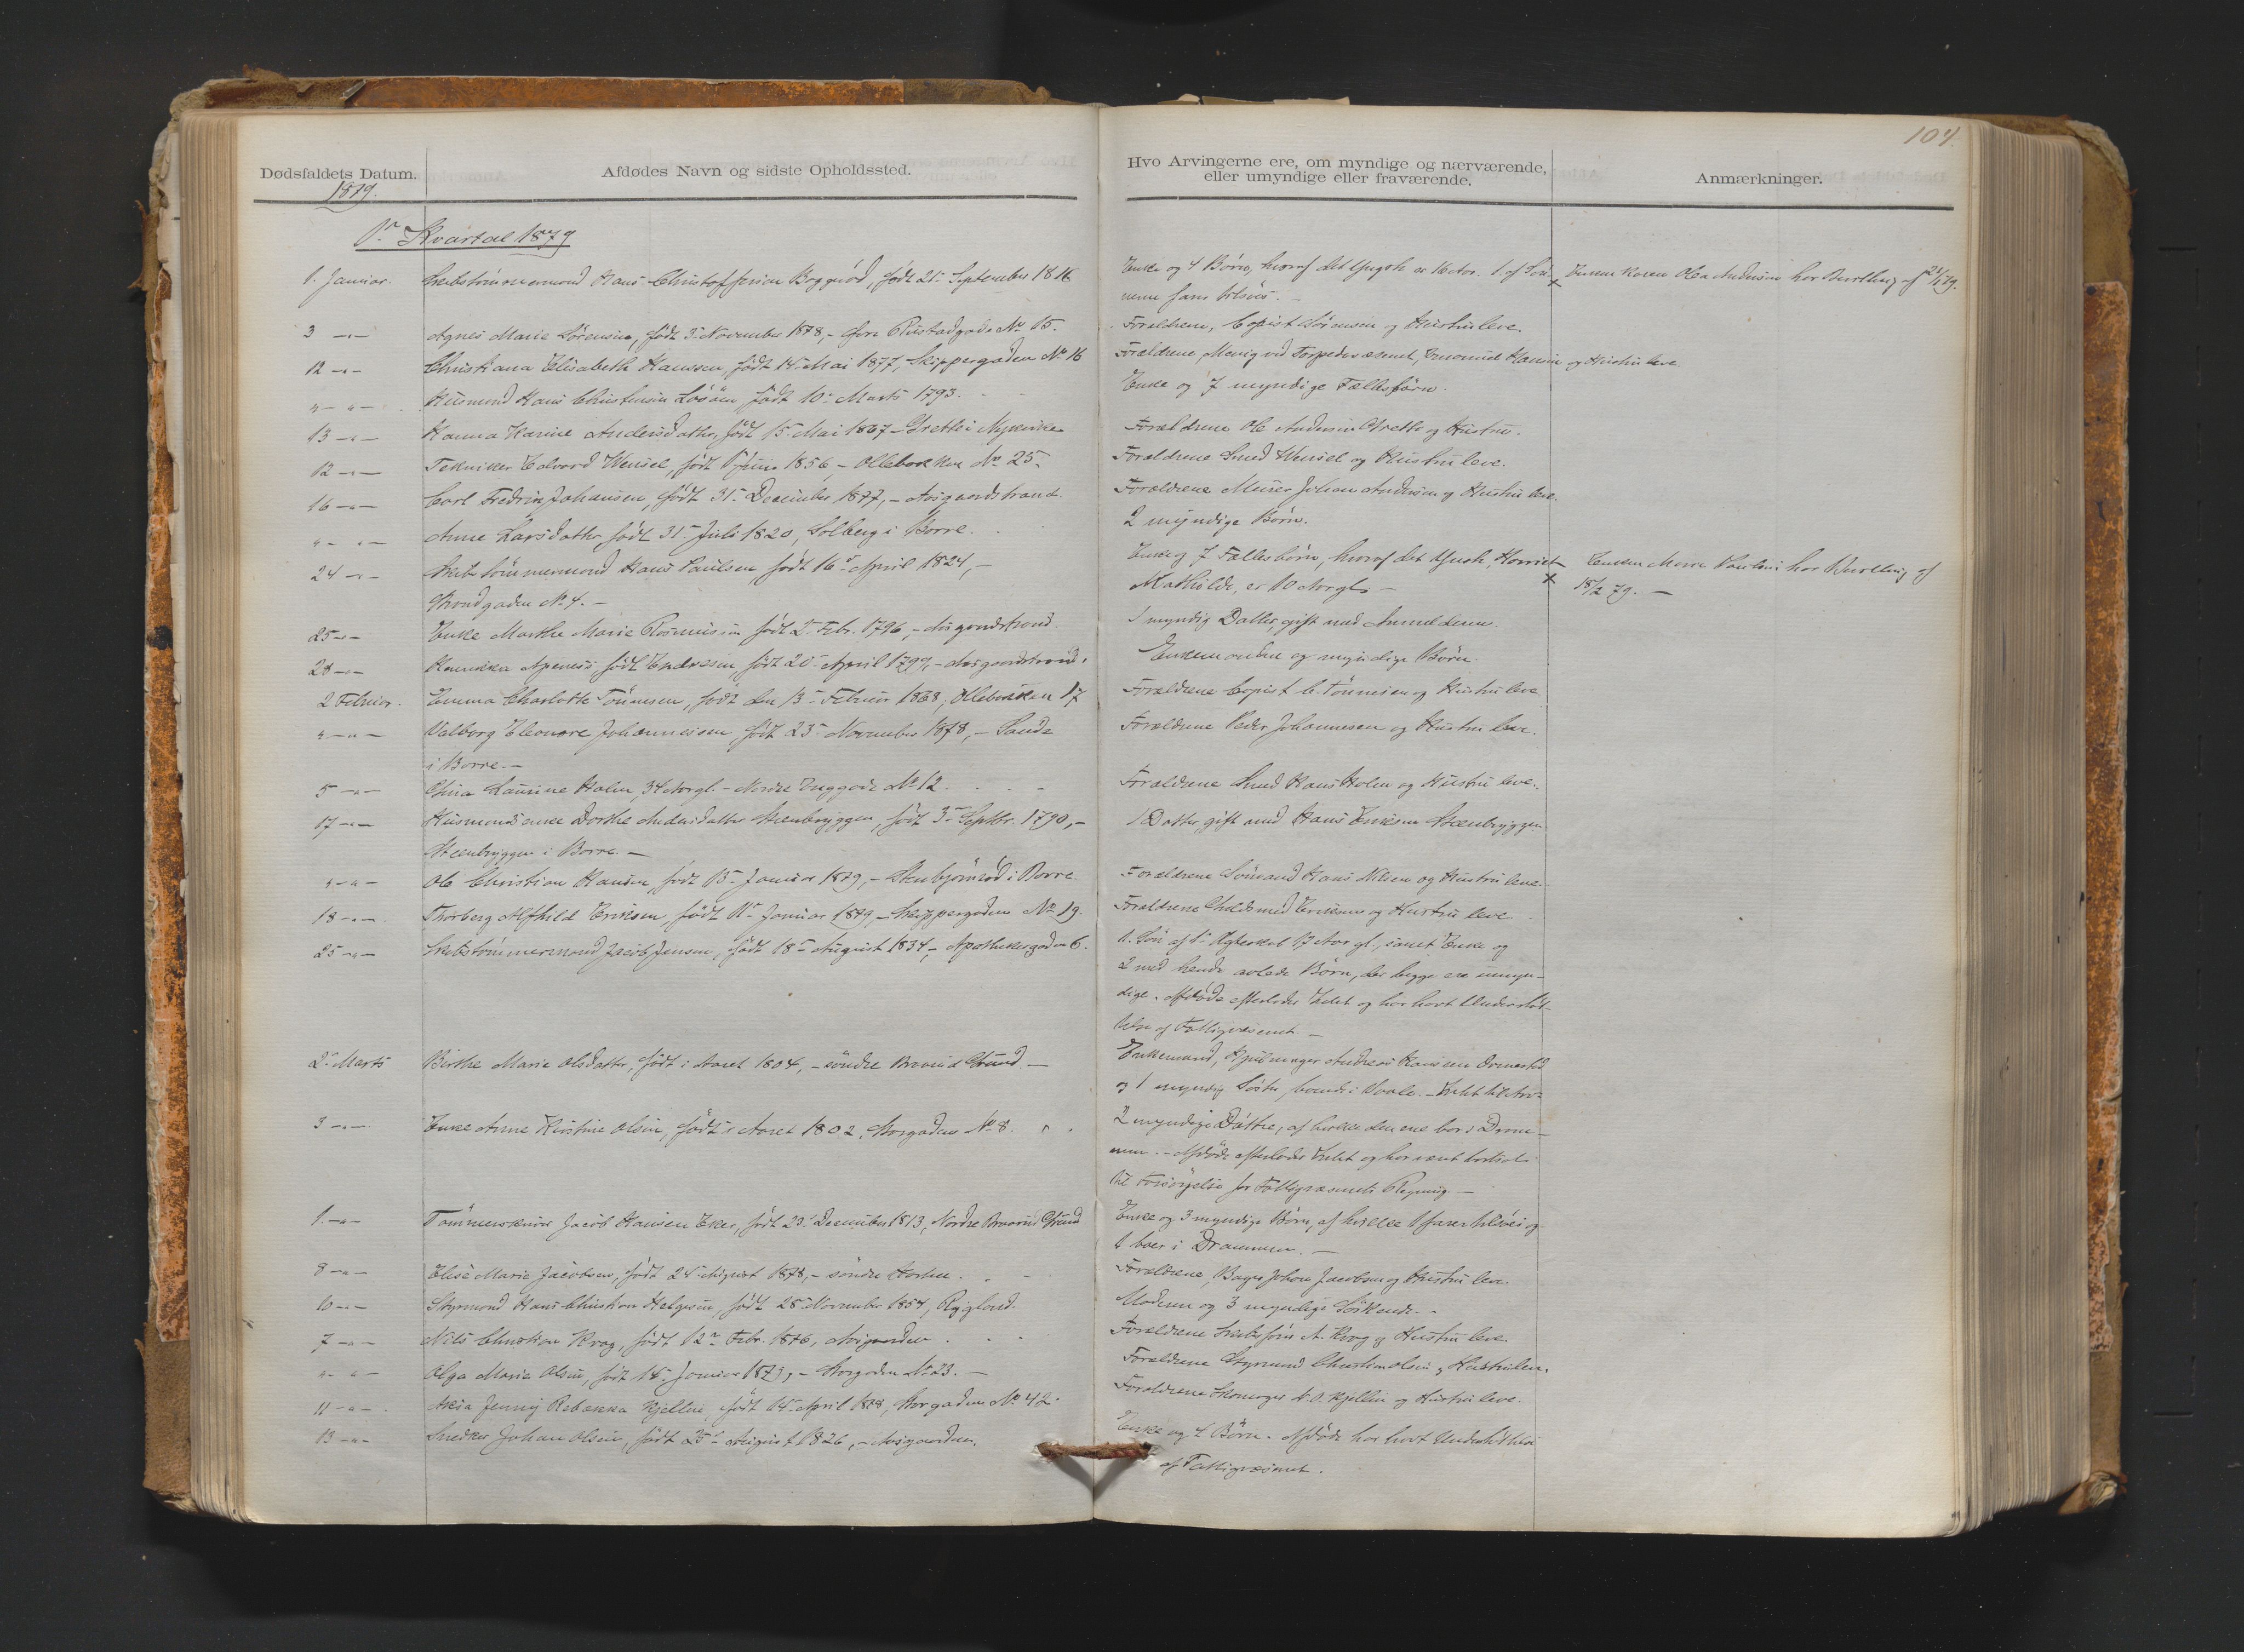 104
Dødsfaldets Datum.
1879.
Afdødes Navn og sidste Opholdssted.
Hvo Arvingerne ere, om myndige og nærværende,
eller umyndige eller fraværende.
Anmærkninger.
1ste Kvartal 1879
1. Januar. Hans Christoffersen født 21. September 1816
Enke og 4 Børn, hvoraf det Yngste er 16 Aar. 1 af Søn-
nerne fare tilsøes.
Enken Karen Olea Andersen har Bevilling af
3 -"- Agnes Marie Sørensen, født 3. November 1878, No 15.
Forældrene, Copist Sørensen og Hustru leve.
12 -"- Christiana Elisabeth Hanssen, født 14. Mai 1877, Skippergaden No 16
Forældrene, Menig ved Torpedovæsenet, Hansen og Hustru leve
"-"- Husmand Hans Christensen født 10. Marts 1793.
Enke og 7 myndige Fællesbørn.
13 -"- Hanna Karine Andersdatter, født 15. Mai 1867 - Grette i Nykirke
Forældrene Ole Andersen Grette og Hustru.
12 -"- Tekniker Edvard Wensel, født 1856 - Ollebakken No 25.
Forældrene Smed Wensel og Hustru leve.
16 -"- Carl Fredrik Johansen, født 31. December 1877, - Aasgaardstrand.
Forældrene Murer Johan Andersen og Hustru leve.
"-"- Anne Larsdatter, født 31. Juli 1820, Solberg i Borre.
2 myndige Børn.
24 -"- Skibstømmermand Hans Paulsen, født 16. April 1824, -
Strandgaden No 4. -
Enke og 7 Fællesbørn, hvoraf det Yngste, Harriet
Mathilde, er 10 Aar gl. -
Enken Marie Paulsen har Bevilling af
18/2 79. -
25 -"- Enke Marthe Marie Rasmussen født 2. Febr. 1796, - Aasgaardstrand.
1 myndig Datter, gift med Anmelderen.
28 -"- født Endresen, født 20. April 1799, - Aasgaardstrand.
Enkemanden og myndige Børn.
2 Februar. Emma Charlotte Tønnesen, født den 13. Februar 1868, Ollebakken 17
Forældrene Copist C. Tønnesen og Hustru leve
"-"- Valborg Eleonore Johannessen, født 23. November 1878, - Sande
i Borre. -
Forældrene Peder Johannesen og Hustru leve.
5 -"- Laurine Holm, 34 Aar gl. - Nordre Enggade No 12
Forældrene Smed Hans Holm og Hustru leve.
17 -"- Husmandsenke Dorthe Andersdatter Steenbryggen, født 3. Septbr. 1790, -
Steenbryggen i Borre. -
1 Datter, gift med Hans Eriksen Steenbryggen
"-"- Ole Christian Hansen, født 15. Januar 1879, - Stenbjørnrød i Borre.
Forældrene Sømand Hans Nilsen og Hustru leve.
18 -"- Thorberg Alfhild Eriksen, født 11. Januar 1879, - Skippergaden No 19.
Forældrene Guldsmed Eriksen og Hustru leve
25 -"- Skibstømmermand Jacob Jensen, født 18. August 1834, - Apothekergaden 6.
1. Søn af 1. Ægteskab 17 Aar gl., samt Enke og
2 med hende avlede Børn, der begge ere umyn-
dige. Afdøde efterlader Intet og har havt Understøt-
telse af Fattigvæsenet. -
2. Marts Birthe Marie Olsdatter, født i Aaret 1804, - søndre Braarud Grund -
Enkemand, Andreas Hanssen
og 1 myndig Søster, boende i Vaale. - Intet til Arv
3 -"- Enke Anne Kirstine Olsen, født i Aaret 1802, Storgaden No 8.
2 myndige Døttre, af hvilke den ene bor i Dram-
men. - Afdøde efterlader Intet og har været bortsat
til Forsørgelse for Fattigvæsenets Regning. -
1 -"- Jacob Hansen Eker, født 23. December 1813, Nordre Braarud Grund
Enke og 3 myndige Børn, af hvilke 1 farer tilsøes og
1 boer i Drammen. -
8 -"- Elise Marie Jacobsen, født 24. August 1878, - søndre Horten.
Forældrene, Bager Johan Jacobsen og Hustru leve.
10 -"- Styrmand Hans Christian Helgesen, født 28. November 1854, Rygland.
Moderen og 3 myndige Søskende. -
7 -"- Nils Christian Krag, født 12. Febr. 1876, Aasgaarden
Forældrene A. Krag og Hustru leve.
"-"- Olga Marie Olsen, født 18. Januar 1879, - Storgaden No 23. -
Forældrene Styrmand Christian Olsen og Hustru leve.
11 -"- Jenny Rebekka Kjellin, født 15. April 1878, Storgaden No 42.
Forældrene Skomager Kjellin og Hustru leve.
13 -"- Snedker Johan Olsen, født 25. August 1826, - Aasgaarden.
Enke og 4 Børn. Afdøde har havt Understøttelse
af Fattigvæsenet.